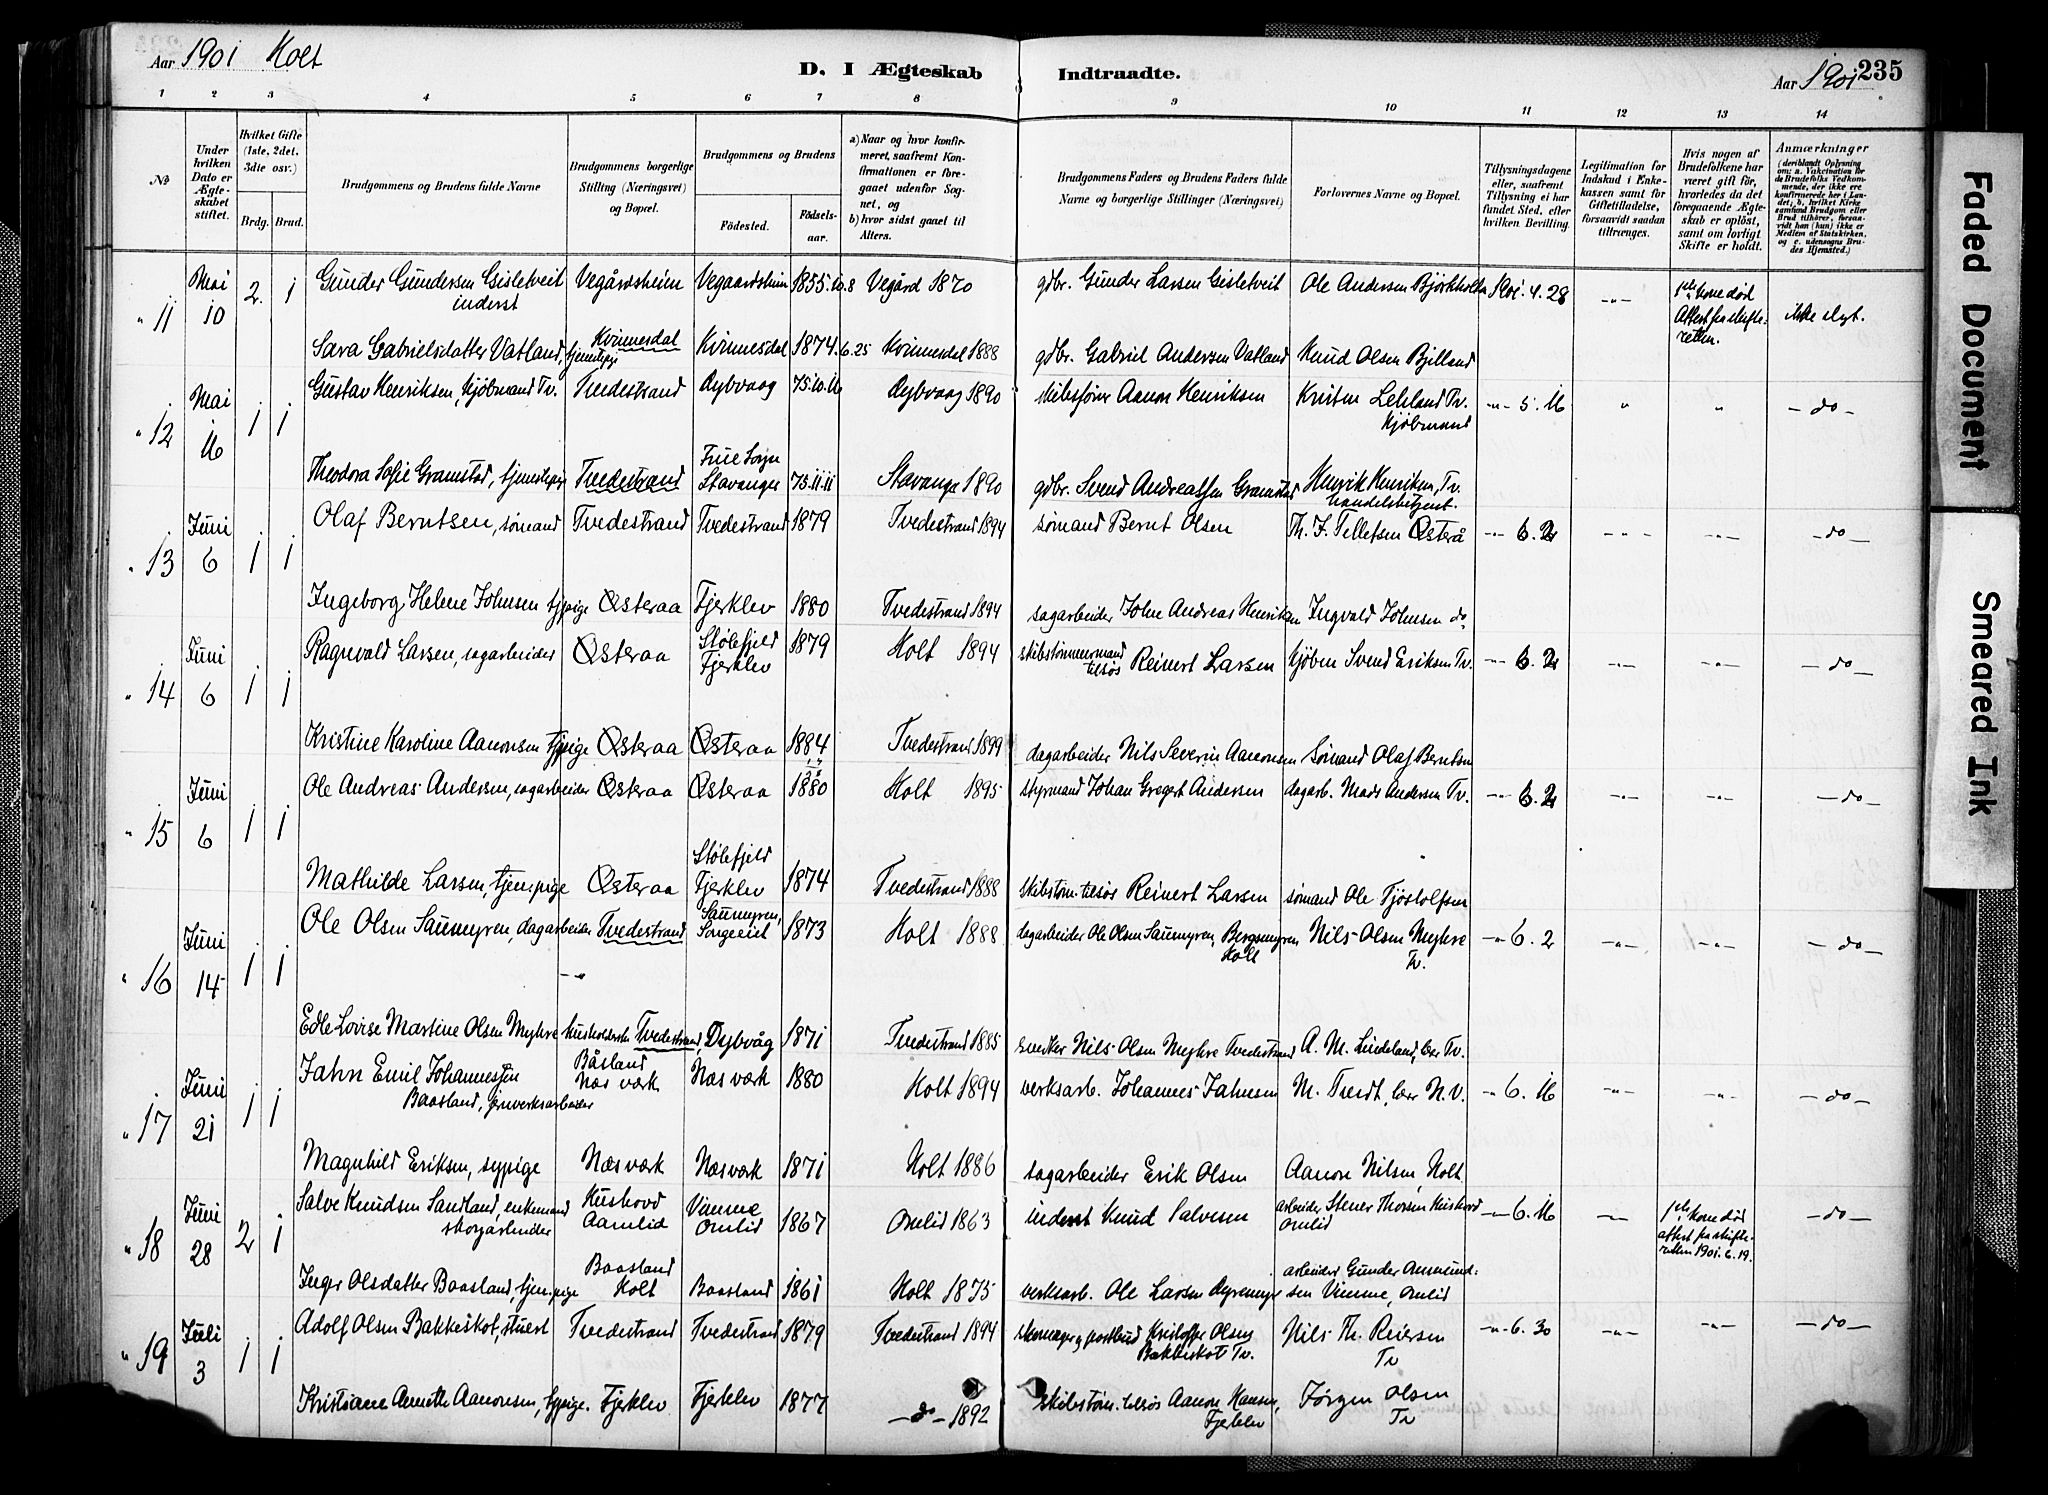 Aar 1901 Holt
D. I Ægteskab Indtraadte.
Aar 1901 235
1 2 3 4 5 6 7 8 9 10 11 12 13 14
№
Under hvilken Dato er Ægteskabet stiftet.
Hvilket Gifte (1ste, 2det, 3die osv.)
Brdg. Brud.
Brudgommens og Brudens fulde Navne
Brudgommens borgerlige Stilling (Næringsvei) og Bopæl.
Brudgommens og Brudens
Födested.
Födselsaar.
a) Naar og hvor konfirmeret, saafremt Konfirmationen er foregaaet udenfor Sognet, og
b) hvor sidst gaaet til Alters.
Brudgommens Faders og Brudens Faders fulde Navne og borgerlige Stillinger (Næringsvei)
Forlovernes Navne og Bopæl.
Tillysningsdagene eller, saafremt Tillysning ei har fundet Sted, efter hvilken Bevilling.
Legitimation for Indskud i Enkekassen samt for Giftetilladelse, forsaavidt saadan tiltrænges.
Hvis nogen af Brudefolkene har været gift för, hvorledes da det foregaaende Ægteskab er oplöst, samt om lovligt Skifte er holdt.
Anmærkninger
(deriblandt Oplysning om: a. Vakcination for de Brudefolks Vedkommende, der ikke ere konfirmerede her i Landet; b. hvilket Kirkesamfund Brudgom eller Brud tilhörer, forsaavidt han (hun) ikke er Medlem af Statskirken, og c. udensogns Brudes Hjemsted.)
" 11 Mai 10 2. 1 Gunder Gundersen Gisletveit inderst Vegårdsheim Vegaardsheim 1855.10.8 Vegård 1870 gdbr. Gunder Larsen Gisletveit Ole Andersen Björkholt 1901. 4. 28 -"- 1ste kone död Attest fra skifteretten. ikke slegt.
Sara Gabrielsdatter Vatland, tjenestepige Kvinnesdal Kvinnesdal 1874. 6.25 Kvinnesdal 1888 gdbr. Gabriel Andersen Vatland Knud Olsen Bjilland
" 12 Mai 16 1 1 Gustav Henriksen, kjöbmand Tv. Tvedestrand Dybvaag 75.10.16 Dybvaag 1890 skibsförer Aanon Henriksen Kristen Lekland Tv. Kjöbmand -"- 5. 16 " " - do -
Theodora Sofie Gramstad, tjenestepige Tvedestrand Frue Sogn Stavanger 75.11.11 Stavanger 1890 gdbr. Svend Andreassen Gramstad Henrik Henriksen, Tv. handelsbetjent.
" 13 Juni 6 1 1 Olaf Berntsen, sömand Tvedestrand Tvedestrand 1879 Tvedestrand 1894 sömand Bernt Olsen Th. F. Tellefsen Østerå -"- 6. 2 -"- -"- - do -
Ingeborg Helene Johnsen tjpige Østeraa Fjerklev 1880 Tvedestrand 1894 sagarbeider John Andreas Henriksen Ingvald Johnsen do
" 14 Juni 6 1 1 Ragnvald Larsen, sagarbeider Østeraa Stölefjeld Fjerklev 1879 Holt 1894 skibstömmermand tilsös Reinert Larsen kjöbm Svend Eriksen Tv. -"- 6. 2 -"- -"- - do -
Kristine Karoline Aanonsen tjpige Østeraa Østeraa 1884 Tvedestrand 1899 dagarbeider Nils Severin Aanonsen Sömand Olaf Berntsen
" 15 Juni 6 1 1 Ole Andreas Andersen, sagarbeider Østeraa Østeraa 1880 Holt 1895 styrmand Johan Gregert Andersen dagarb. Mads Andersen Tv. -"- 6. 2 -"- -"- - do -
Mathilde Larsen, tjen.pige Østeraa Stölefjeld Fjerklev 1874 Tvedestrand 1888 skibstöm. tilsös Reinert Larsen sömand Ole Tjöstolfsen
" 16 Juni 14 1 1 Ole Olsen Saumyren, dagarbeider Tvedestrand Saumyren, Songeeiet 1873 Holt 1888 dagarbeider Ole Olsen Saumyren, Bergsmyren Holt Nils Olsen Myhre Tv. -"- 6. 2 -"- -"- - do -
-"-
Edle Lovise Martine Olsen Myhre husholderske Tvedestrand, Dybvåg 1871 Tvedestrand 1885 snedker Nils Olsen Myhre Tvedestrand A. M. Lindeland, lær Tv.
" 17 Juni 21 1 1 Jahn Emil Johannessen Baasland, jernverksarbeider Båsland Næs værk Næs værk 1880 Holt 1894 verksarb. Johannes Jahnsen M. Tvedt, lær N. V. -"- 6. 16 -"- -"- - do -
Magnhild Eriksen, sypige Næs værk Næs værk 1871 Holt 1886 sagarbeider Erik Olsen Aanon Nilsen, Holt
" 18 Juni 28 2 1 Salve Knudsen Sandland, enkemand skogarbeider Hushovd Aamlid Vimme Omlid 1867 Omlid 1863 inderst Knud Salvesen arbeider Stener Thorsen Hushovd Omlid -"- 6. 16 -"- 1ste kone död attest fra skifteretten 1901. 6. 19. - do -
Inger Olsdatter Baasland, tjen.pige Baasland Holt Baasland 1861 Holt 1875 verksarb. Ole Larsen Dyremyr arbeider Gunder Aanundsen Vimme, Omlid
" 19 Juli 3 1 1 Adolf Olsen Bakkeskot, stuert Tvedestrand Tvedestrand 1879 Tvedestrand 1894 skomager og postbud Kristoffer Olsen Bakkeskot Tv. Nils Th. Reiersen Tv -"- 6. 30 -"- -"- - do -
Kristiane Annette Aanonsen, sypige. Fjerklev Fjerklev 1877 - do - 1892 skibstöm. tilsös Aanon Hansen, Fjerklev Jörgen Olsen Tv
Faded Document
Smeared Ink